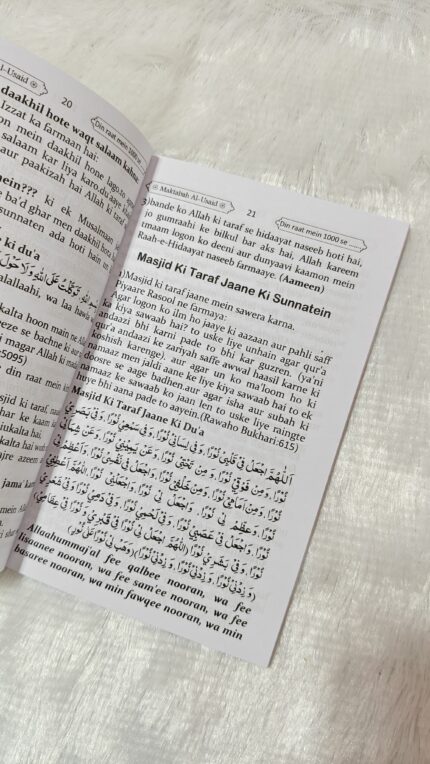 Al-Usaid
20
Din raat mein 1000 se
daakhil hote waqt salaam kahna
Izzat ka farmaan hai:
mein daakhil hone lago to apne
salaam kar liya karo,duaye
aur paakizah hai Allah ki taraf
mein??? ki ek Musalmaan
ke ba'd ghar mein daakhil hota
sunnaten ada hoti hain
ki du'a
kalta hoon main ne
se bachne ki aur
magar Allah ki
5095)
din raat mein
masjid ki taraf
ghar ke kaam
niukalta hai.
kalta hai
ajre azeem
jama'
Maktabah Al-Usaid
21
Din raat mein 1000 se ......
3)bande ko Allah ki taraf se hidaayat naseeb hoti hai,
jo gumraahi ke bilkul bar aks hai, Allah kareem
tmaam logon ko deeni aur dunyaavi kaamon mein
Raah-e-Hidaayat naseeb farmaaye. (Aameen)
Masjid Ki Taraf Jaane Ki Sunnatein
1)Masjid ki taraf jaane mein sawera karna.
Pyaare Rasool ne farmaya:
Agar logon ko ilm ho jaaye ki aazaan aur pahli saff
ki kiya sawaab hai? to uske liye unhain agar qur'a
andaazi bhi karni pade to bhi kar guzren. (ya'ni
qur'a andaazi ke zariyah saffe awwal haasil karne ki
koshish karenge). aur agar un ko ma'loom ho ki
namaaz men jaldi aane ke liye kiya sawaab hai to ek
doosre se aage badhen aur agar isha aur subah ki
namaaz ke sawaab ko jaan len to uske liye raingte
huye bhi aana pade to aayein.(Rawaho Bukhari:615)
Masjid Ki Taraf Jaane Ki Du'a
اَللّٰهُمَّ اجْعَلْ فِيْ قَلْبِيْ نُوْرًا، وَفِيْ لِسَانِيْ نُوْرًا، وَفِيْ سَمْعِيْ نُوْرًا، وَفِيْ بَصَرِيْ
نُوْرًا، وَمِنْ فَوْقِيْ نُوْرًا، وَمِنْ تَحْتِيْ نُوْرًا، وَعَنْ يَمِيْنِيْ نُوْرًا، وَعَنْ شِمَالِيْ
نُوْرًا، وَمِنْ أَمَامِيْ نُوْرًا، وَمِنْ خَلْفِيْ نُوْرًا، وَاجْعَلْ فِيْ نَفْسِيْ نُوْرًا، وَأَعْظِمْ لِيْ
نُوْرًا، وَعَظِّمْ لِيْ نُوْرًا، وَاجْعَلْ لِيْ نُوْرًا، وَاجْعَلْنِيْ نُوْرًا، اَللّٰهُمَّ أَعْطِنِيْ
نُوْرًا، وَاجْعَلْ فِيْ عَصَبِيْ نُوْرًا، وَفِيْ لَحْمِيْ نُوْرًا، وَفِيْ دَمِيْ نُوْرًا، وَفِيْ شَعْرِيْ
نُوْرًا، وَفِيْ بَشَرِيْ نُوْرًا (اَللّٰهُمَّ اجْعَلْ لِيْ نُوْرًا فِيْ قَبْرِيْ وَ نُوْرًا فِيْ عِظَامِيْ)
(وَزِدْنِيْ نُوْرًا، وَزِدْنِيْ نُوْرًا، وَزِدْنِيْ نُوْرًا)(وَهَبْ لِيْ نُوْرًا عَلٰى نُوْرٍ)
Allaahummaj'al fee qalbee nooran, wa fee
lisaanee nooran, wa fee sam'ee nooran, wa fee
basaree nooran, wa min fawqee nooran, wa min